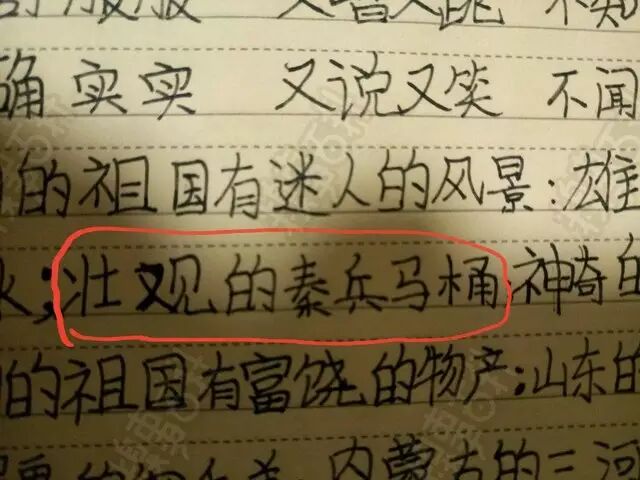 又说又跳 不知
确实实 又说又笑 不闻
的祖国有迷人的风景:雄
;壮观的秦兵马桶,神奇的
的祖国有富饶的物产:山东的
内蒙古的三河